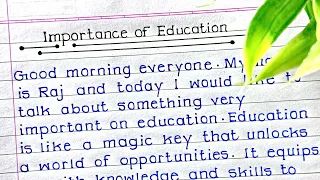 Importance of Education
Good morning everyone. My
is Raj and today I would like to
talk about something very
important on education. Education
is like a magic key that unlocks
a world of opportunities. It equips
with knowledge and skills to